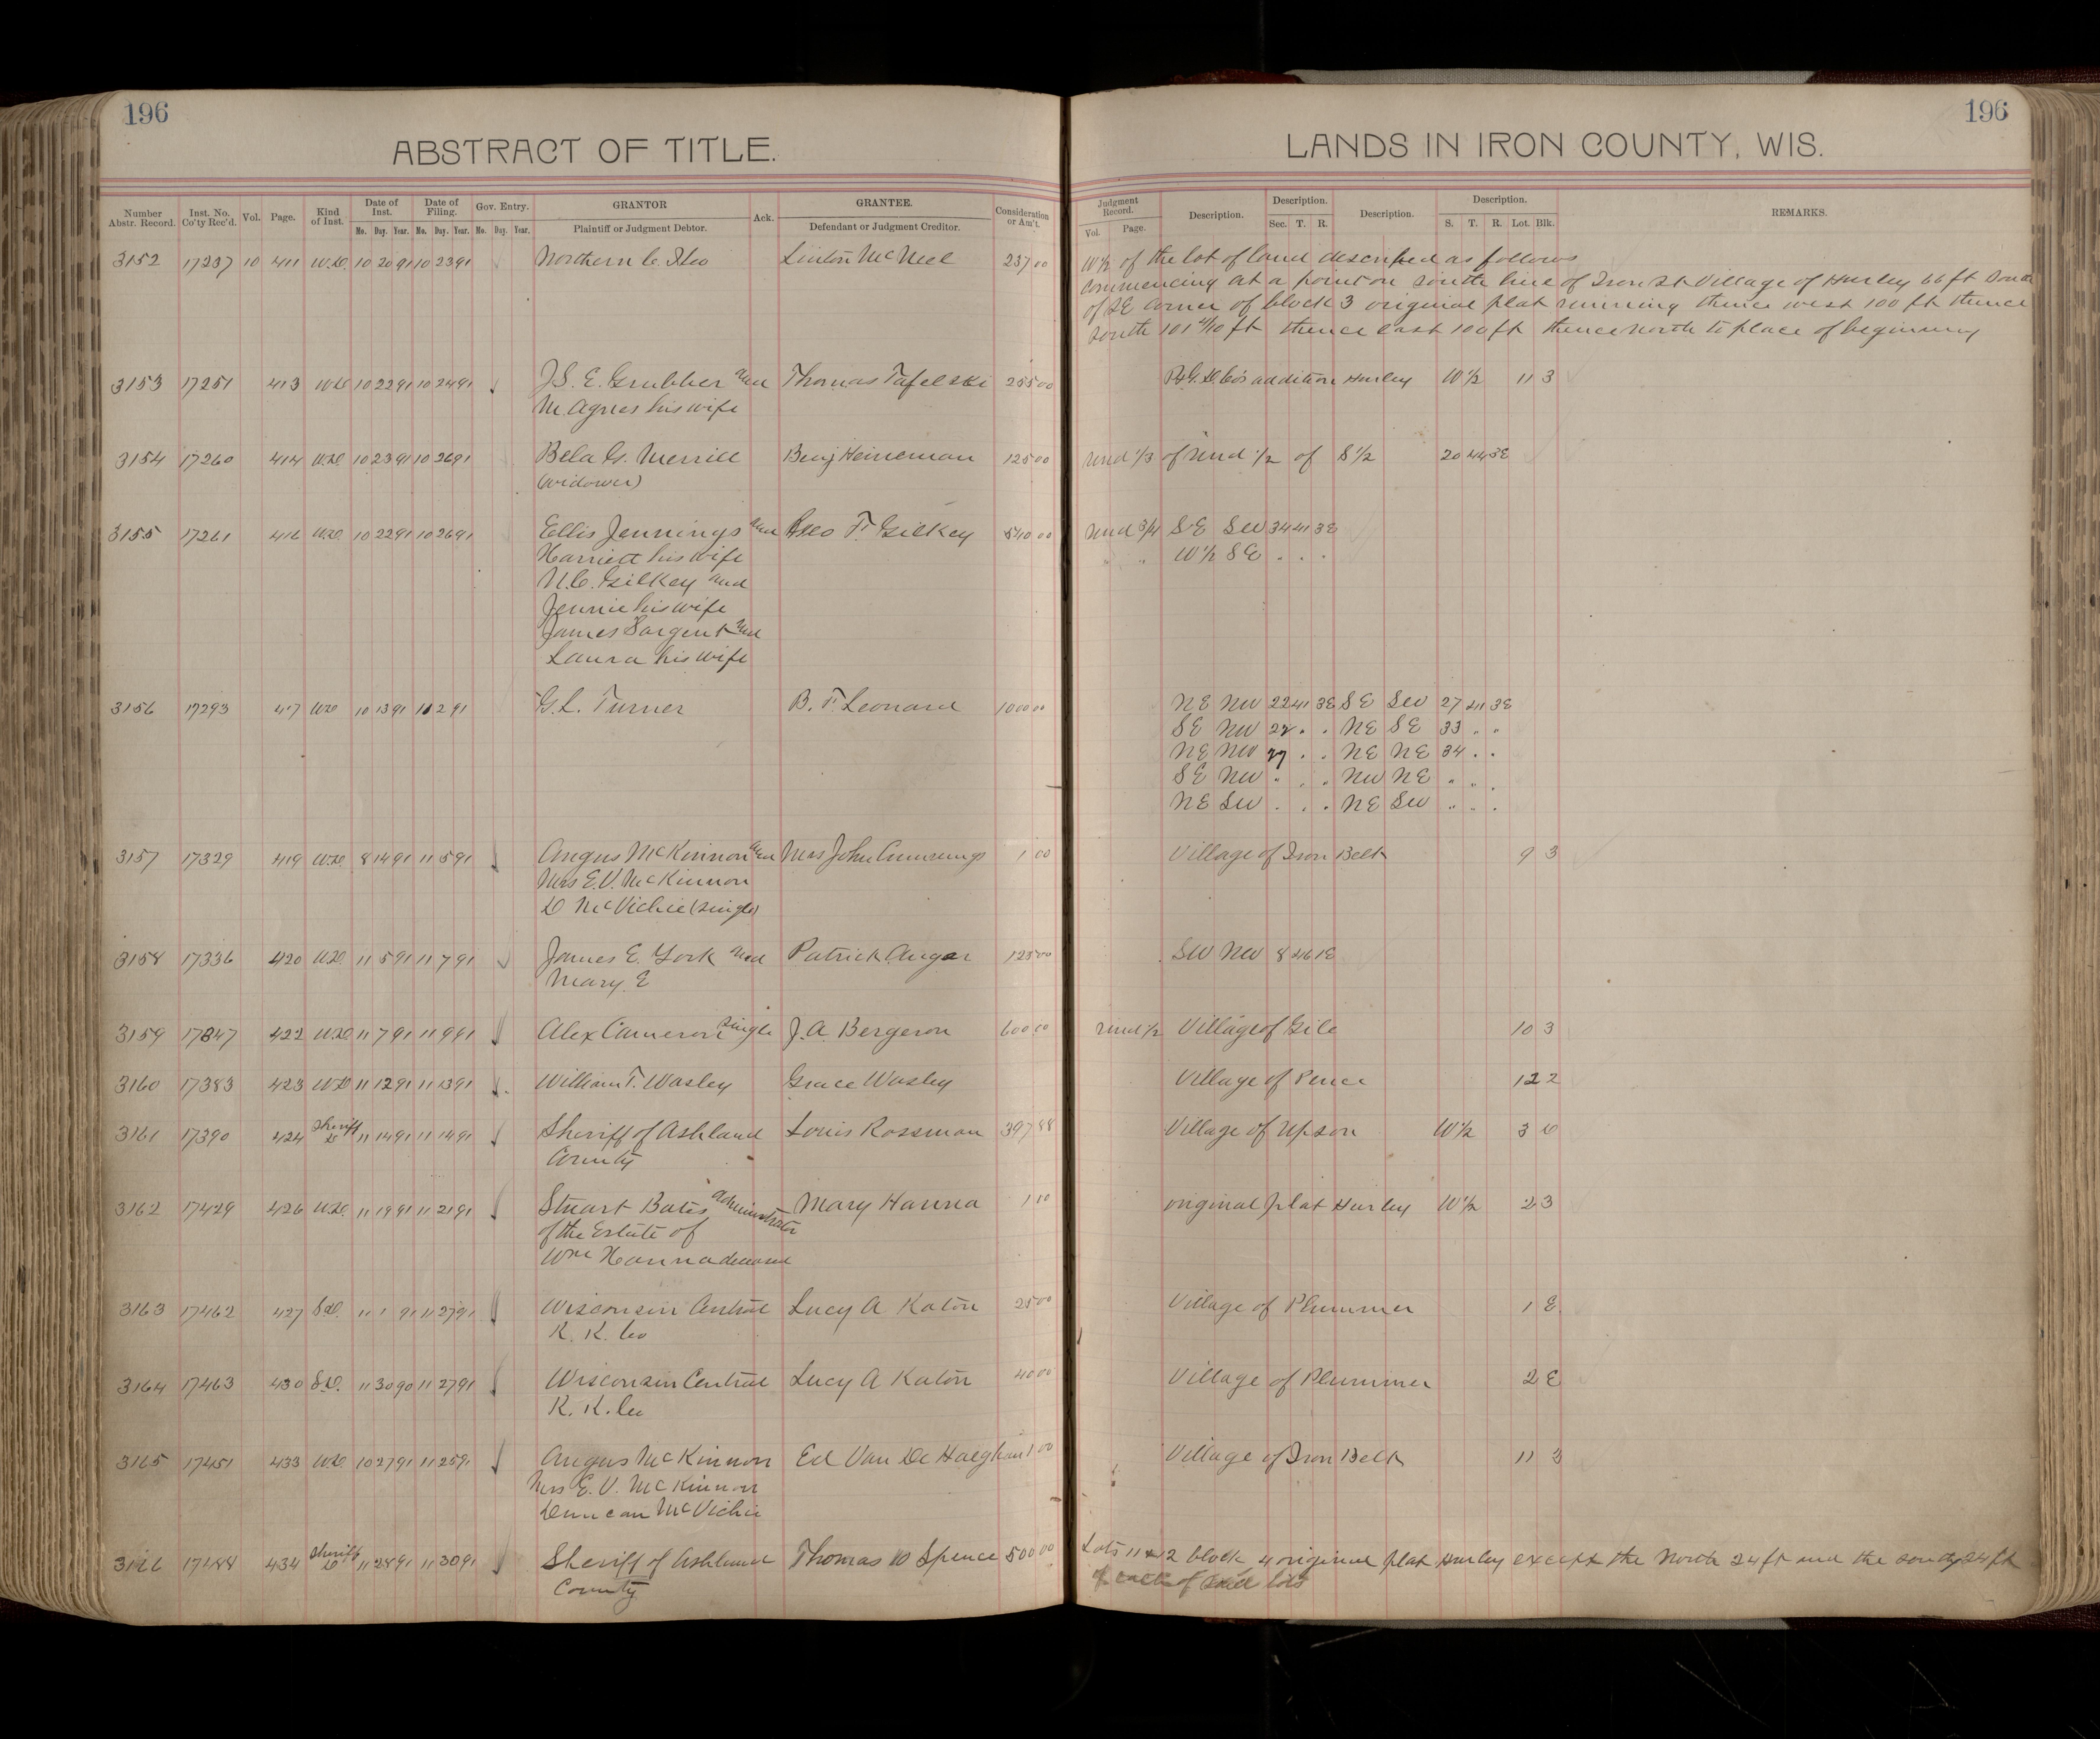 196
ABSTRACT OF TITLE.
Number Abstr. Record. Inst. No. Co'ty Rec'd. Vol. Page. Kind of Inst. Date of Inst. Mo. Day. Year. Date of Filing. Mo. Day. Year. Gov. Entry. Mo. Day. Year. GRANTOR Plaintiff or Judgment Debtor. Ack. GRANTEE. Defendant or Judgment Creditor. Consideration or Am't.
3152 17237 10 411 W.D. 10 20 91 10 23 91 Northern C. Linton McNeel 237 00
3153 17251 413 WD 10 22 91 10 24 91 J.S. E. Grubber and Thomas Tafelski 255 00
M. Agnes his wife
3154 17260 414 W.D. 10 23 91 10 26 91 Bela G. Merrill Benj Heineman 125 00
(widower)
3155 17261 416 W.D. 10 22 91 10 26 91 Ellis Jennings and Geo T. Gilkey 540 00
Harriett his wife
N.C. Gilkey and
Jennie his wife
James Sargent and
Laura his wife
3156 17293 417 WD 10 13 91 11 2 91 G.L. Turner B. F. Leonard 1000 00
3157 17329 419 W.D. 8 14 91 11 5 91 Angus McKinnon and Mrs John Cummings 1 00
Mrs E.V. McKinnon
D McVichie (single)
3158 17336 420 W.D. 11 5 91 11 7 91 James E. York and Patrick Angar 125 00
Mary E
3159 17347 422 W.D. 11 7 91 11 9 91 Alex Cameron single J.A. Bergeron 600 00
3160 17383 423 WD 11 12 91 11 13 91 William T. Wasley Grace Wasley
3161 17390 424 Sheriff D 11 14 91 11 14 91 Sheriff of Ashland Louis Rossman 397 88
County
3162 17429 426 W.D. 11 19 91 11 21 91 Stuart Bates administrator Mary Hanna 1 00
of the Estate of
Wm Hanna deceased
3163 17462 427 S.D. 11 1 91 11 27 91 Wisconsin Central Lucy A Katon 25 00
R. R. Co
3164 17463 430 S.D. 11 30 90 11 27 91 Wisconsin Central Lucy A Katon 40 00
R. R. Co
3165 17451 433 WD 10 27 91 11 25 91 Angus McKinnon Ed Van De Haeghan 1 00
Mrs E. V. McKinnon
Duncan McVichie
3166 17488 434 Sheriff D 11 28 91 11 30 91 Sheriff of Ashland Thomas W Spence 500 00
County
196
LANDS IN IRON COUNTY, WIS.
Judgment Record. Vol. Page. Description. Description. Sec. T. R. Description. Description. S. T. R. Lot. Blk. REMARKS.
W 1/2 of the lot of land described as follows
commencing at a point on south line of Iron St Village of Hurley 66 ft South
of SE corner of block 3 original plat running thence west 100 ft thence
South 101 4/10 ft thence east 100 ft thence north to place of beginning
addition Hurley W 1/2 11 3
und 1/3 of und 1/2 of S 1/2 20 44 3E
und 3/4 SE SW 34 41 3E
" W 1/2 SE . . .
NE NW 22 41 3E SE SW 27 41 3E
SE NW 22 . . NE SE 33 " "
NE NW 27 . . NE NE 34 . .
SE NW " . . NW NE " " .
NE SW . . . NE SW " . .
Village of Iron Belt 9 3
SW NW 8 46 1E
und 1/2 Village of Gile 10 3
Village of Pence 12 2
Village of Upson W 1/2 3 6
original plat Hurley W 1/2 2 3
Village of Plummer 1 E
Village of Plummer 2 E
Village of Iron Belt 11 3
Lots 11 & 12 block 4 original plat Hurley except the North 24 ft and the south 24 ft
of each of said lots